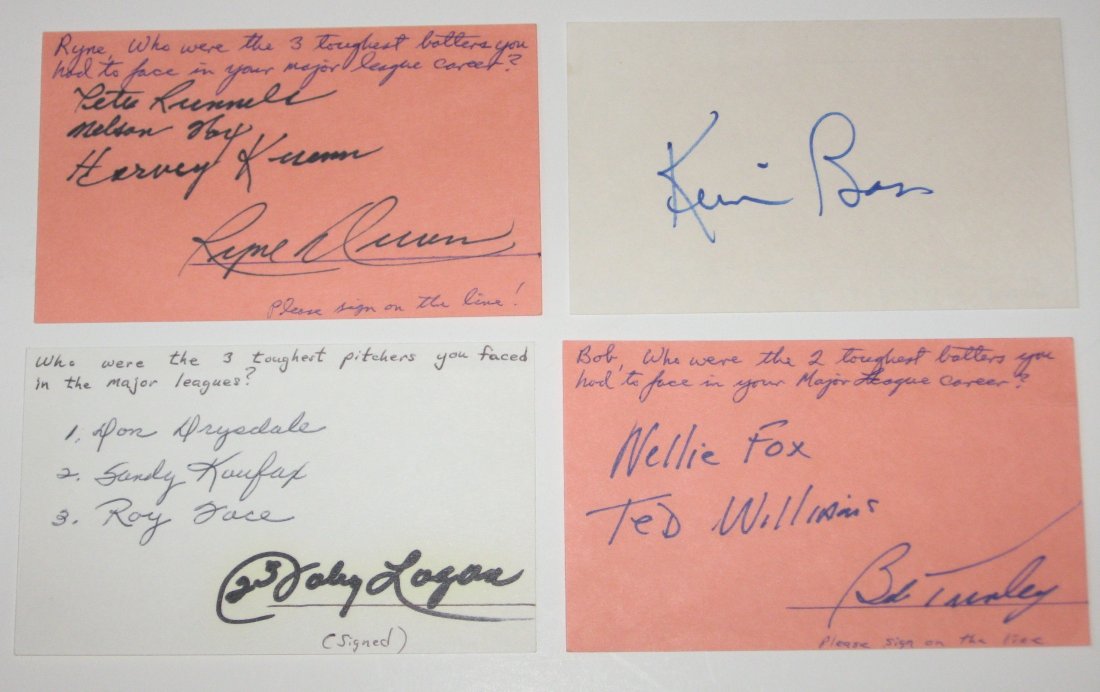 Ryne, Who were the 3 toughest batters you
had to face in your major league career?
Pete Runnels
Nelson Fox
Harvey Kuenn
Ryne Duren
Please sign on the line!
Kevin Bass
Who were the 3 toughest pitchers you faced
in the major leagues?
1. Don Drysdale
2. Sandy Koufax
3. Roy Face
23 Johny Logan
(Signed)
Bob, Who were the 2 toughest batters you
had to face in your Major League career?
Nellie Fox
Ted Williams
Bob Turley
Please sign on the line